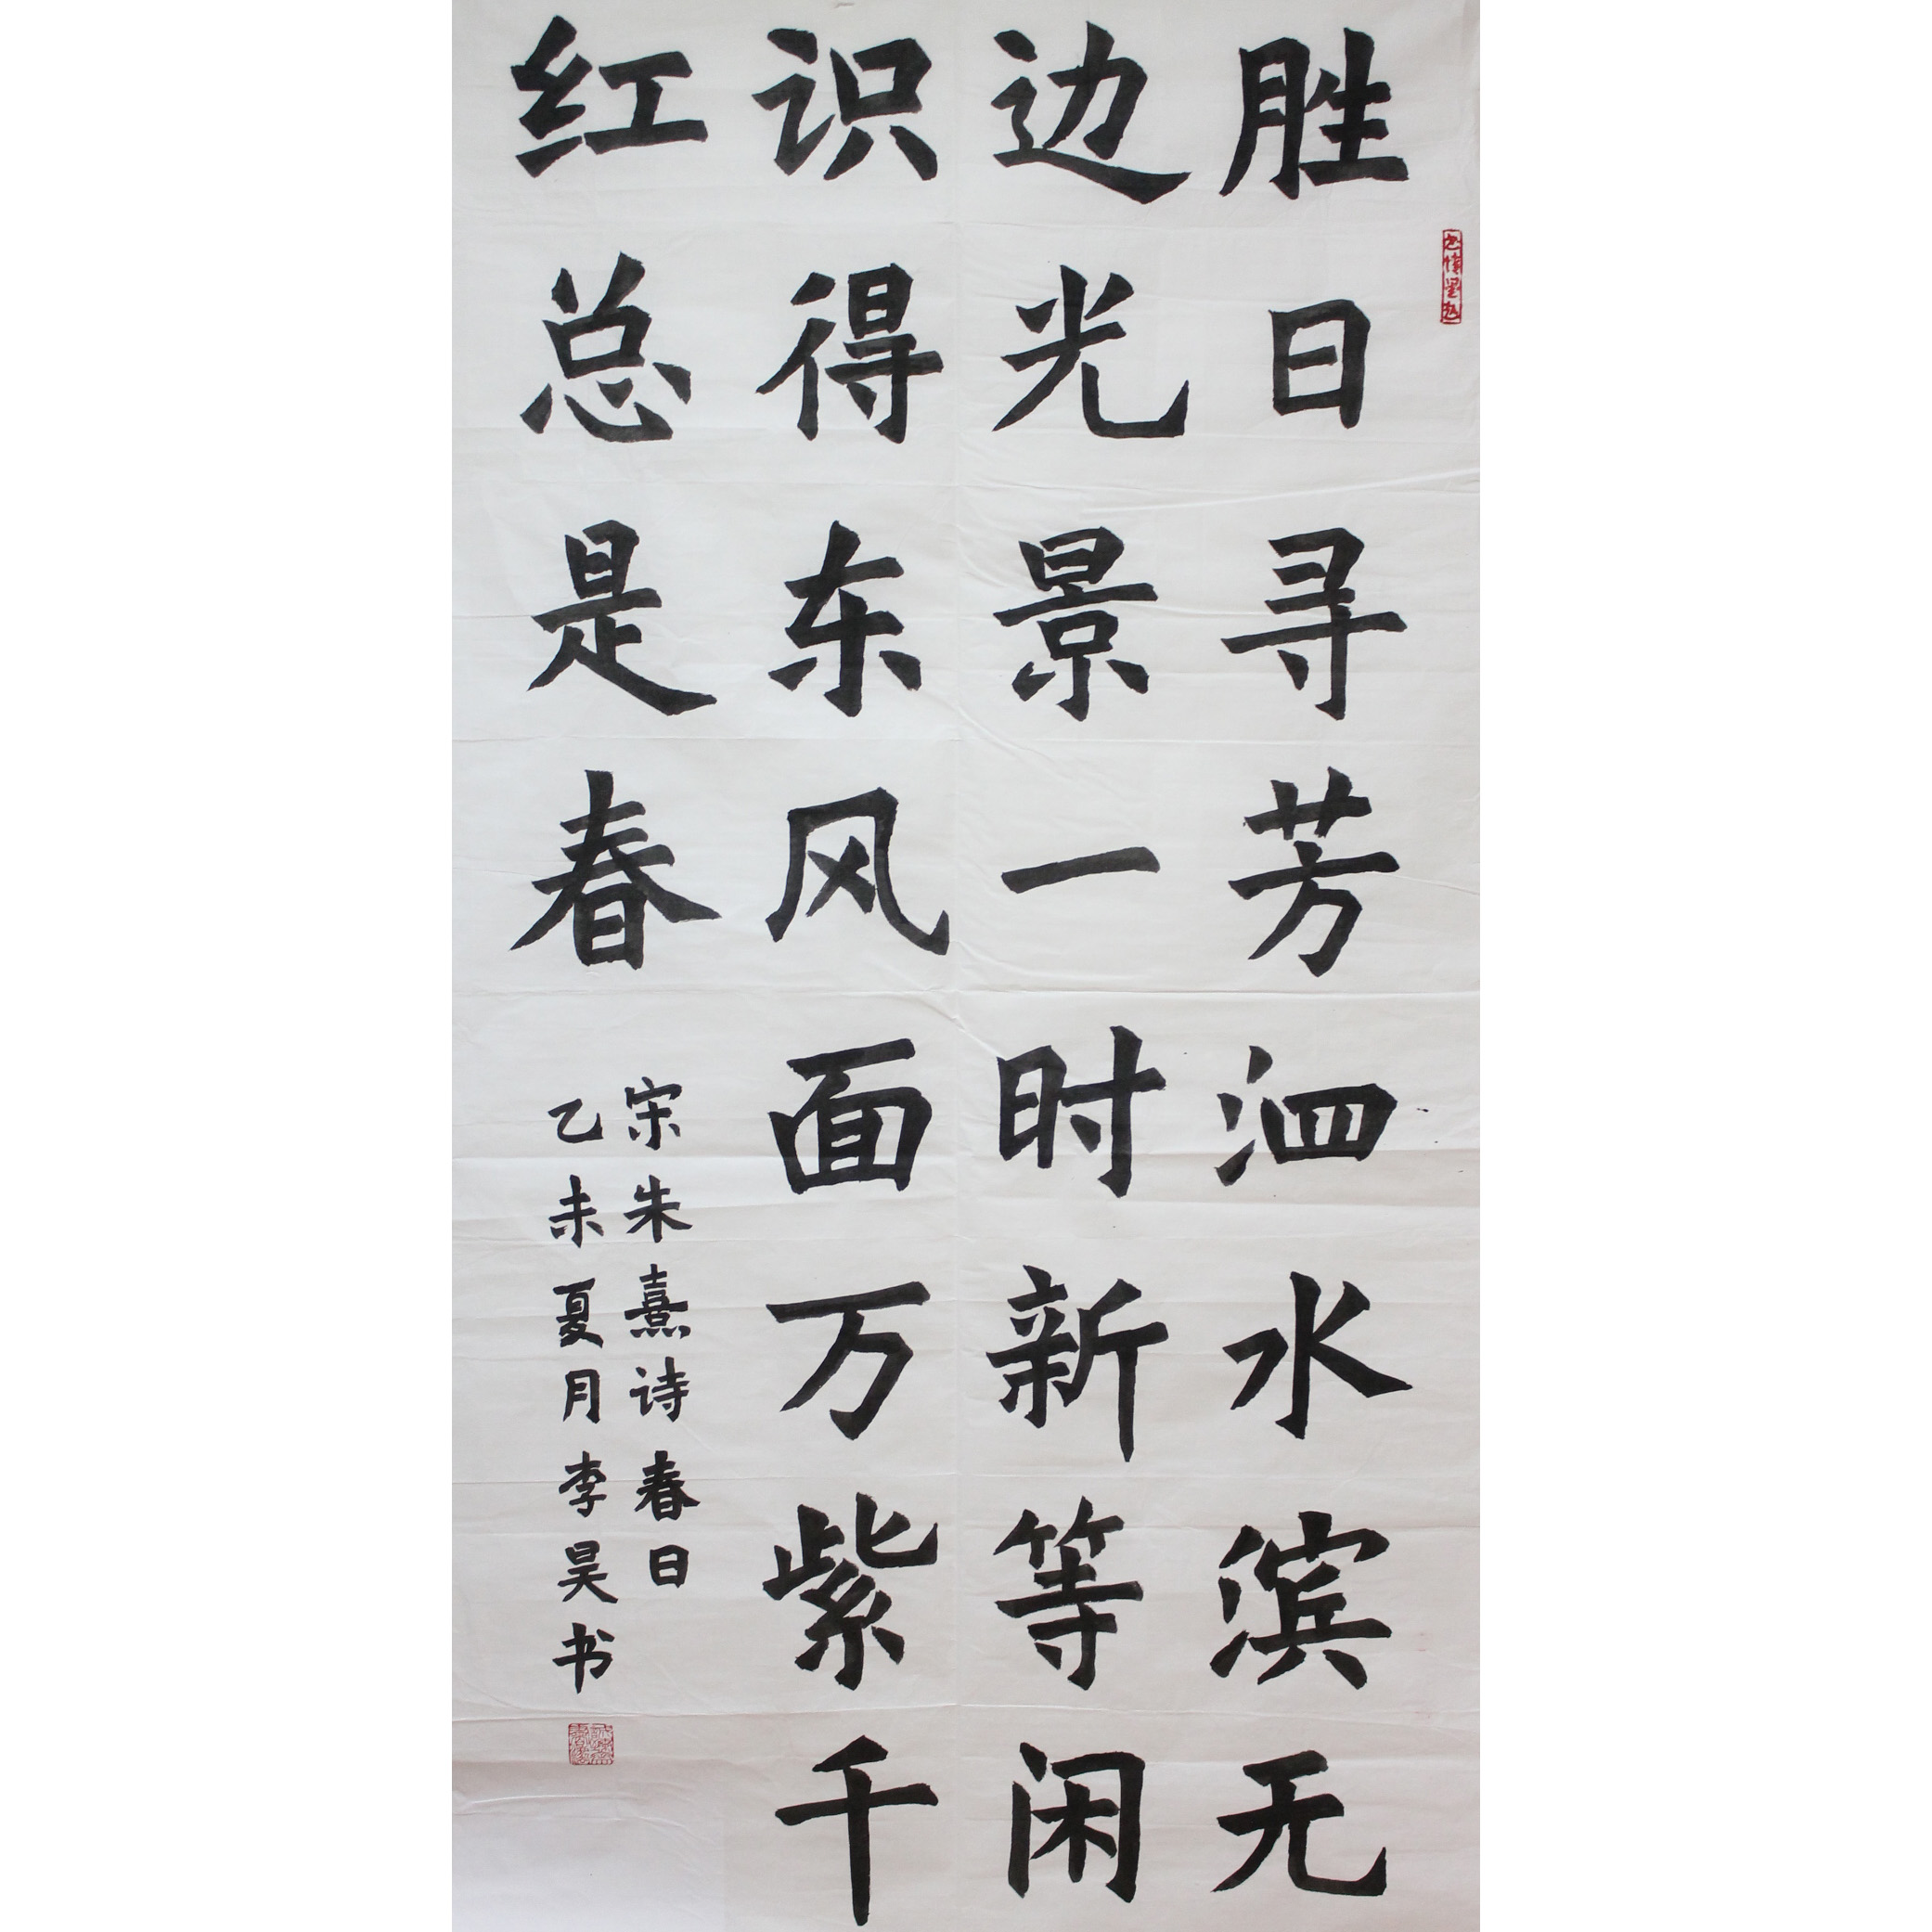 胜日寻芳泗水滨无
边光景一时新等闲
识得东风面万紫千
红总是春
宋朱熹诗春日
乙未夏月李昊书